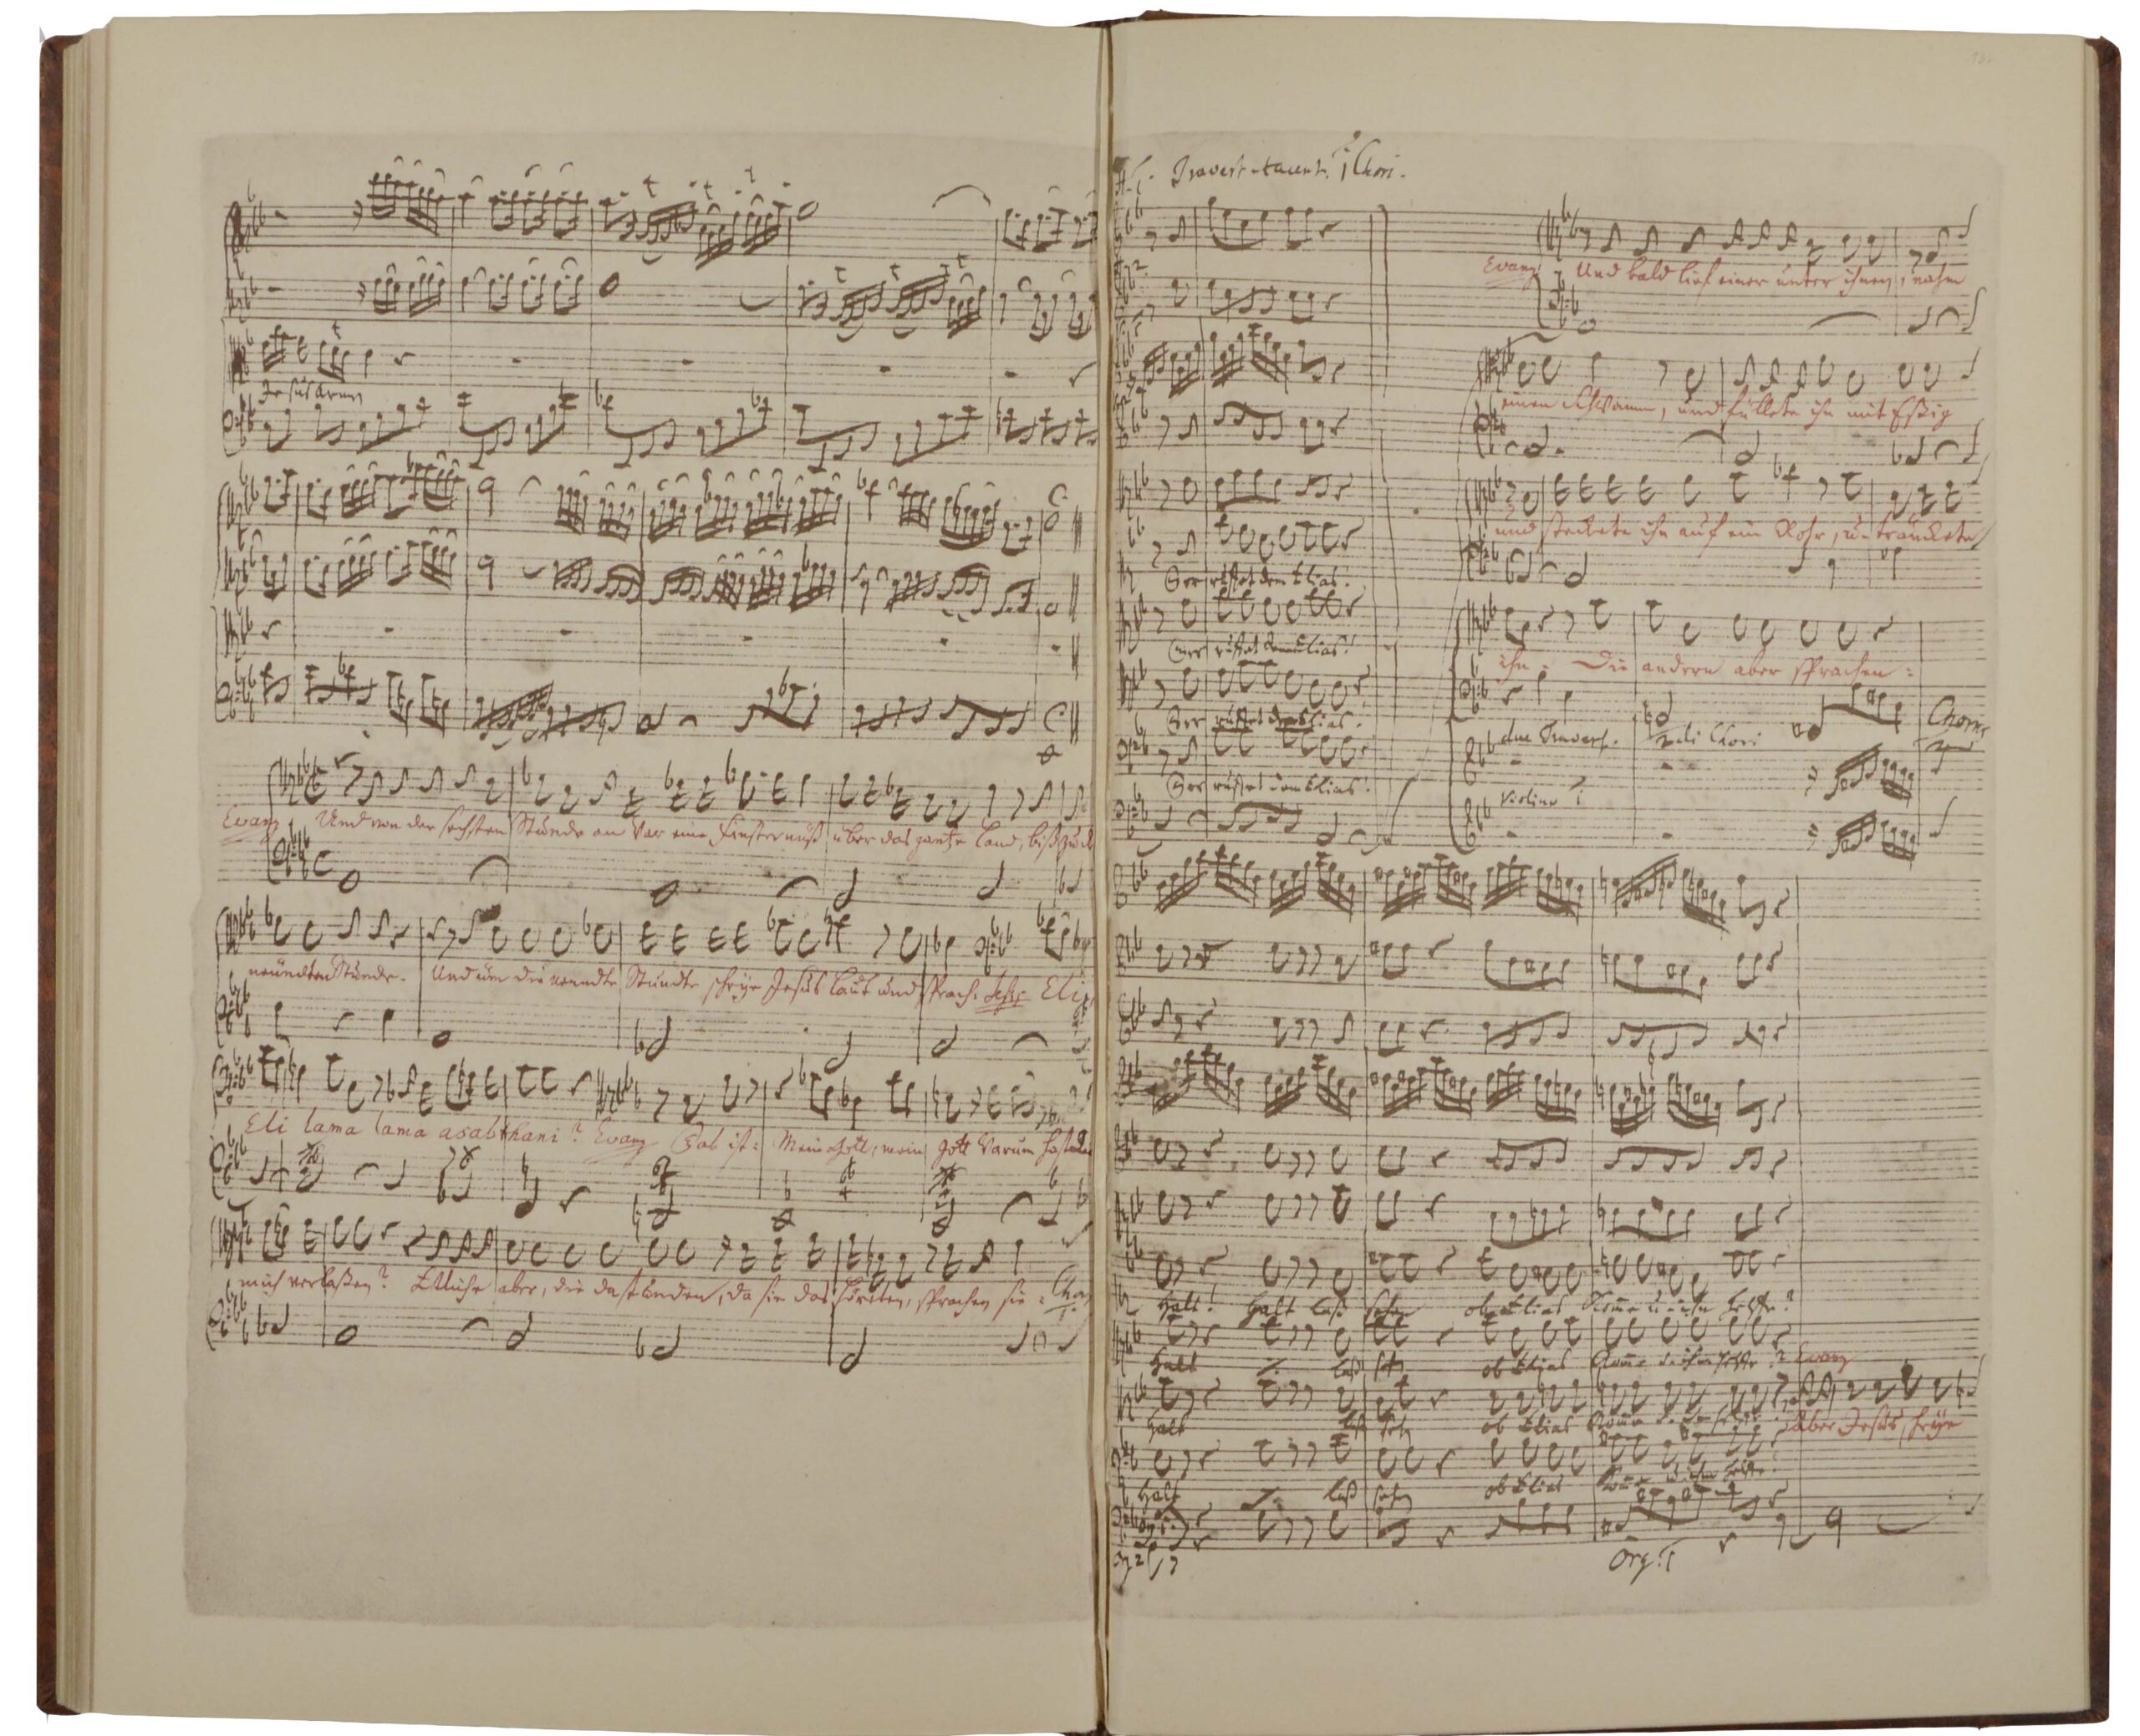 Jesus Armen
Evang. Und von der sechsten Stunde an war eine Finsterniß über das gantze Land, biß zu d
neundten Stunde. Und um die neundte Stunde schrye Jesus laut und sprach: Jesus Eli,
Eli lama lama asabthani? Evang. Das ist: Mein Gott, mein Gott warum hastu
mich verlaßen? Etliche aber, die da stunden, da sie das höreten, sprachen sie: Cho
Travers. tacent. 1 Chori.
Der ruffet dem Elias!
Der ruffet dem Elias!
Der ruffet dem Elias!
Der ruffet dem Elias!
Evang. Und bald lief einer unter ihnen, nahm
einen Schwamm, und füllete ihn mit Eßig
und steckete ihn auf ein Rohr, u. tränckete
ihn. Die andern aber sprachen:
due Travers. 2 di Chori
Chorus
Violino 1
Halt! halt laß sehen ob Elias komme u. ihm helffe?
Halt laß seh ob Elias komme u. ihm helffe? Evang
Halt laß seh ob Elias komme
Aber Jesus schrye
Halt laß seh ob Elias komme u. ihm helffe
Org. 2
Org. 1